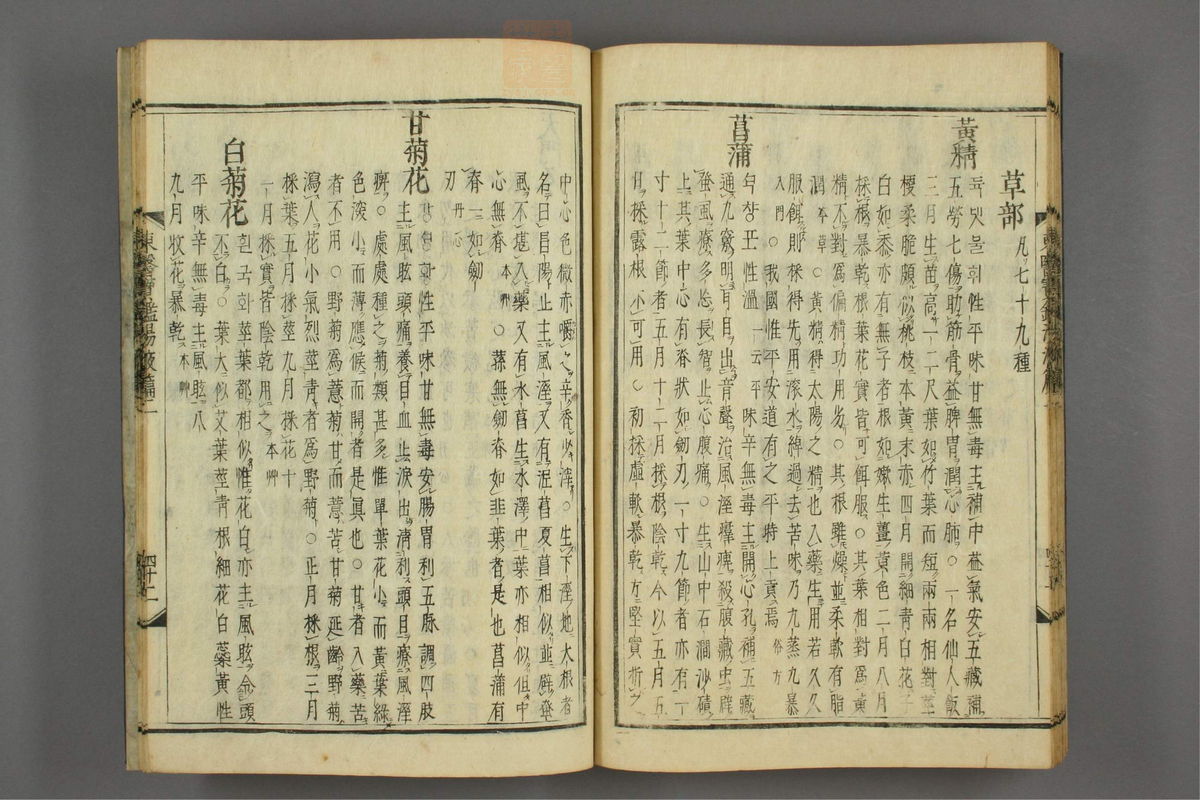 草部 凡七十九種
黃精 둑댓불휘性平味甘無毒主補中益氣安五藏補
五勞七傷助筋骨益脾胃潤心肺○一名仙人飯
三月生苗高一二尺葉如竹葉而短兩兩相對莖
梗柔脆頗似桃枝本黃末赤四月開細靑白花子
白如黍亦有無子者根如嫩生薑黃色二月八月
採根暴乾根葉花實皆可餌服○其葉相對爲黃
精不對爲偏精功用劣○其根雖燥並柔軟有脂
潤 本草 ○黃精得太陽之精也入藥生用若久久
服餌則採得先用滾水綽過去苦味乃九蒸九暴
入門 ○我國惟平安道有之平時上貢焉 俗方
菖蒲 셕창포性溫 一云平 味辛無毒主開心孔補五藏
通九竅明耳目出音聲治風濕𤸷痺殺腹藏虫辟
蚤虱療多忘長智止心腹痛○生山中石澗沙磧
上其葉中心有脊狀如劒刃一寸九節者亦有一
寸十二節者五月十二月採根陰乾今以五月五
日採露根不可用○初採虛軟暴乾方堅實折之
中心色微赤嚼之辛香少滓○生下濕地大根者
名曰昌陽止主風濕又有泥菖夏菖相似並辟蚤
風不堪入藥又有水菖生水澤中葉亦相似但中
心無脊 本草 ○蓀無劒脊如韭葉者是也菖蒲有
脊一如劒
刃 丹心
甘菊花 강셩황性平味甘無毒安腸胃利五脉調四肢
主風眩頭痛養目血止淚出淸利頭目療風濕
痺○處處種之菊類甚多惟單葉花小而黃葉綠
色深小而薄應候而開者是眞也○甘者入藥苦
者不用○野菊爲薏菊甘而薏苦甘菊延齡野菊
瀉人花小氣烈莖靑者爲野菊○正月採根三月
採葉五月採莖九月採花十
一月採實皆陰乾用之 本艸
白菊花 흰국화莖葉都相似惟花白亦主風眩令頭
不白○葉大似艾葉莖靑根細花白蘂黃性
平味辛無毒主風眩八
九月收花暴乾 本艸
東醫寶鑑湯液篇二
四十二